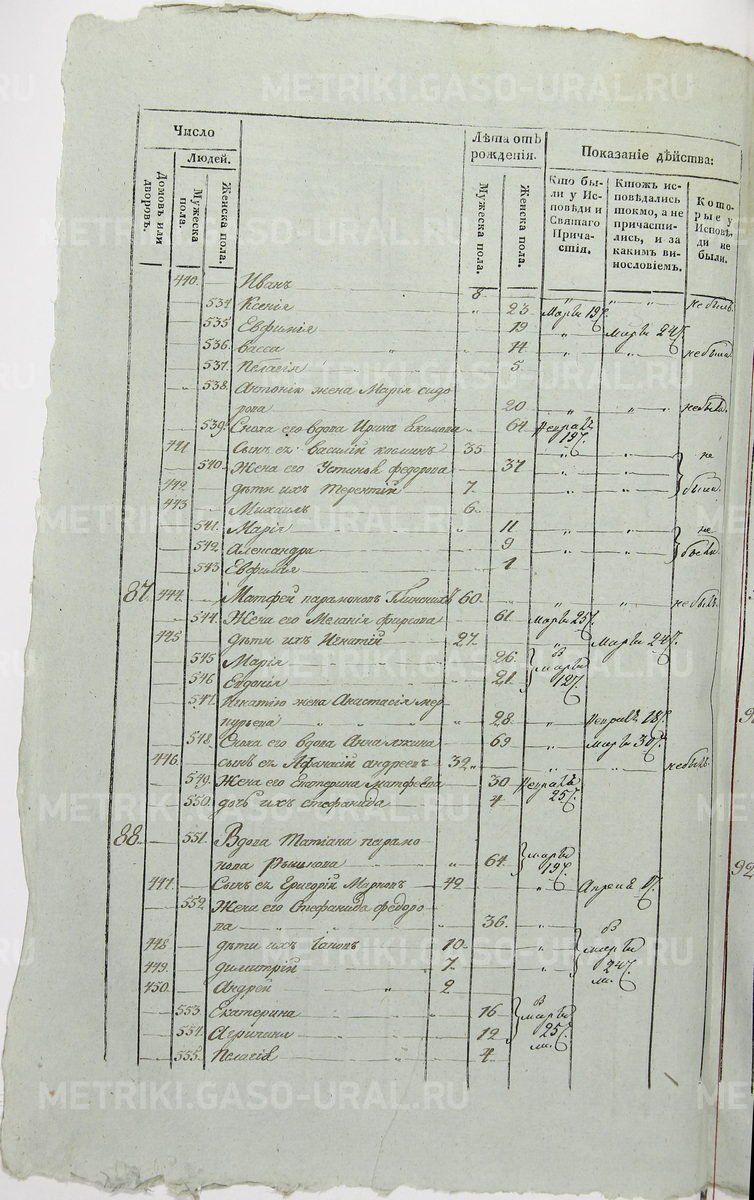 METRIKI.GASO-URAL.RU
Число
Домовъ или дворовъ.
Людей.
Мужеска пола.
Женска пола.
Лѣта отъ рожденія.
Мужеска пола.
Женска пола.
Показаніе дѣйства:
Кто бы-
ли у Ис-
повѣди и
Святаго
Прича-
стія.
Ктожъ ис-
повѣдались
токмо, а не
причасти-
лись, и за
какимъ ви-
нословіемъ.
Кото-
рые у
Исповѣ-
ди не
были.
440. Иванъ 8 небылъ
534. Ксенія 23. Марта 19г.
535 Евфимія 19 Марта 24г.
536. Васса 14. небыла
537. Пелагія 5.
538. Антонію жена Марія сидо
рова 20 небыла
539. Сноха его вдова Ирина 64. Февраля 19г.
441 Сынъ ея Василій козминъ 35 не
540. Жена его Устинья федорова 37
442. дѣти ихъ Терентій 7. были
443 Михаилъ 6.
541. Марія 11 не
542. Александра 9 были
543 Евфимія 1
87. 444. Матфей парамоновъ Глинскихъ 60. небылъ
544. Жена его Меланія фирсова 61. Марта 25г.
445 дѣти ихъ Игнатій 27. Марта 24г.
545 Марія 26. въ
546 Евдокія 21. марта 12г.
547. Игнатію жена Анастасія мер
курьева 28. Февраля 18г.
548. Сноха его вдова Анна 69 Марта 30г.
446. сынъ ея Афанасій андреевъ 32 небылъ
549. Жена его Екатерина Матфеева 30 Февраля
550. дочь ихъ стефанида 4. 25г.
88. 551. Вдова Татіана парамо
нова Рышкова 64. марта 19г.
447. Сынъ ея Григорій Марковъ 42 Апреля
552. Жена его Стефанида федоро
ва 36.
448. дѣти ихъ Іаковъ 10. въ марта
449. димитрій 7. 24г.
450. Андрей 2
553. Екатерина 16 въ
554. Агрипина 12 марта 25г.
555. Пелагія 4.
92